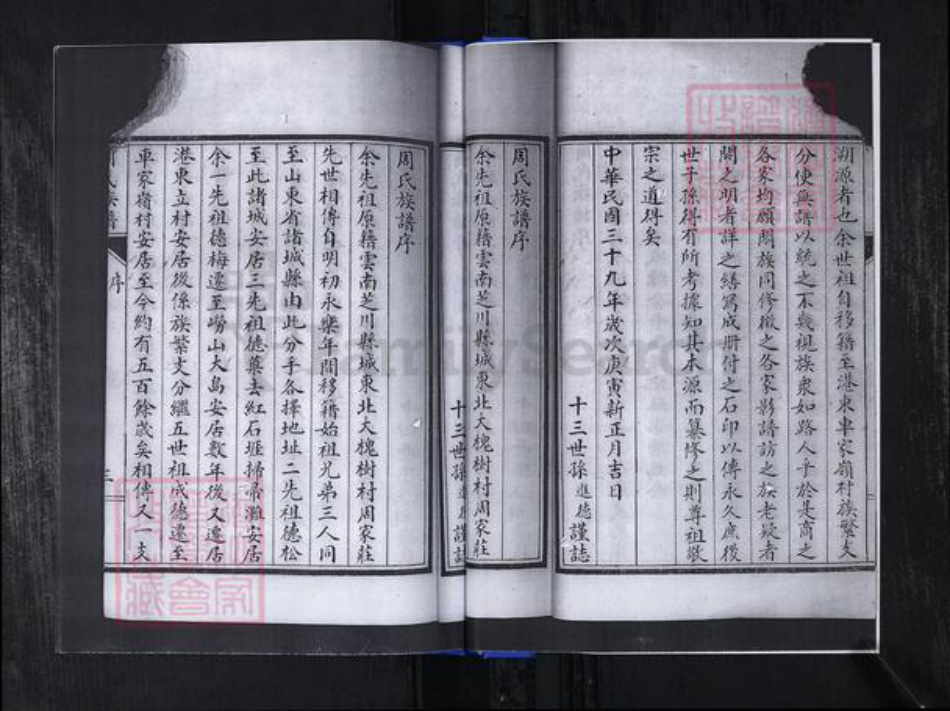 溯源者也余世祖自移籍至港東車家嶺村族繁支
分使無譜以統之不幾視族衆如路人乎於是商之
各家均願闔族同修徵之各家影譜訪之族老疑者
闕之明者詳之繕寫成册付之石印以傳永久庶後
世子孫得有所考據知其本源而纂修之則尊祖敬
宗之道得矣
中華民國三十九年歲次庚寅新正月吉日
十三世孫進德謹誌
周氏族譜序
余先祖原籍雲南芝川縣城東北大槐樹村周家莊
十三世孫進 謹誌
周氏族譜序
余先祖原籍雲南芝川縣城東北大槐樹村周家莊
先世相傳自明初永樂年間移籍始祖兄弟三人同
至山東省諸城縣由此分手各擇地址二先祖德松
至此諸城安居三先祖德藥去紅石堐掃帚灘安居
余一先祖德梅遷至嶗山大島安居數年後又遷居
港東立村安居後係族繁支分繼五世祖成德遷至
車家嶺村安居至今約有五百餘歲矣相傳又一支
氏族譜
序
三
FamilySearch